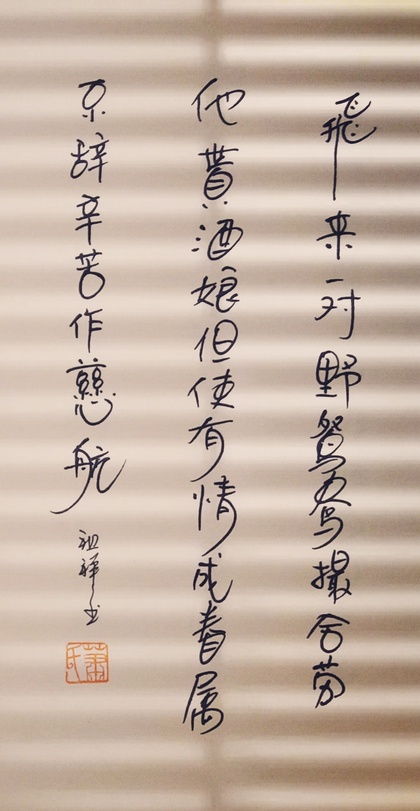 飛来一对野鸳鸯撮合劳
他賣酒娘但使有情成眷属
不辞辛苦作慈航
祖祥书
蕭氏